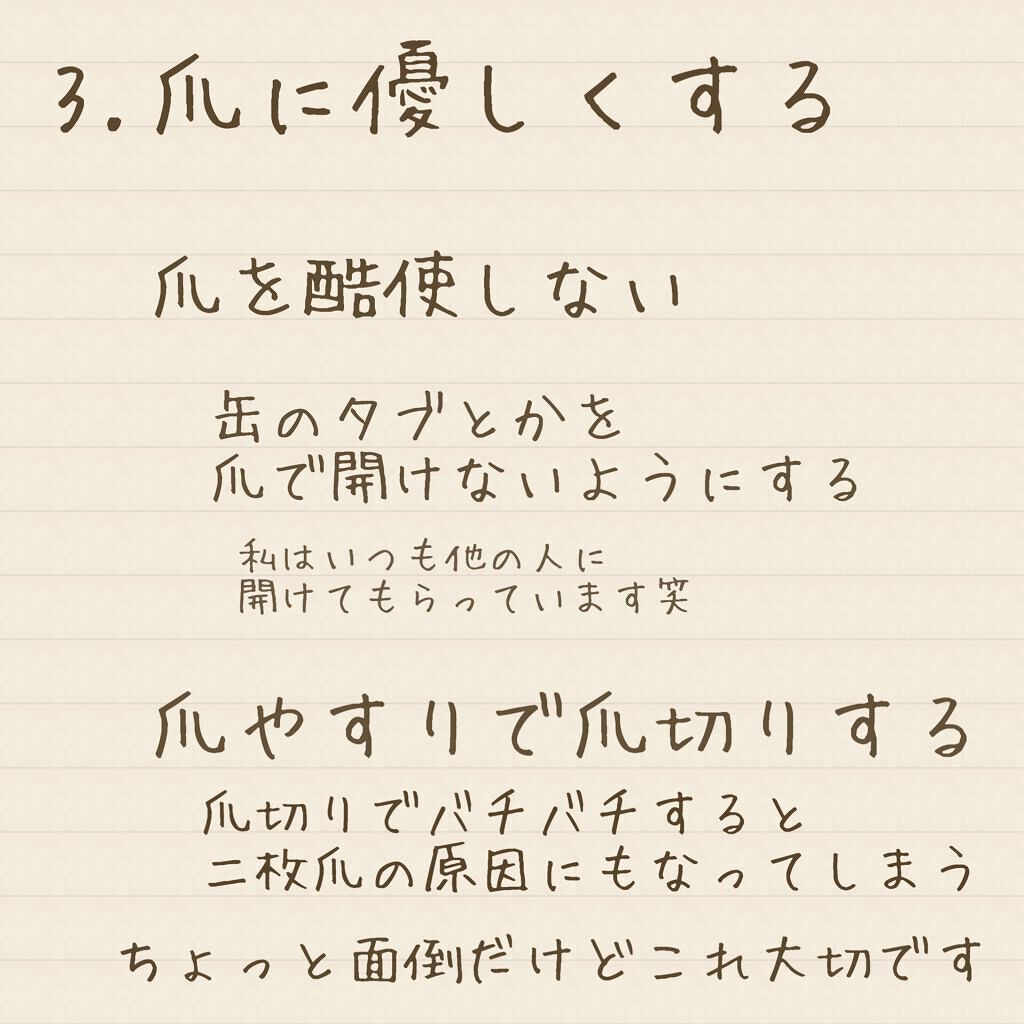 3.爪に優しくする
爪を酷使しない
缶のタブとかを
爪で開けないようにする
私はいつも他の人に
開けてもらっています笑
爪やすりで爪切りする
爪切りでバチバチすると
二枚爪の原因にもなってしまう
ちょっと面倒だけどこれ大切です